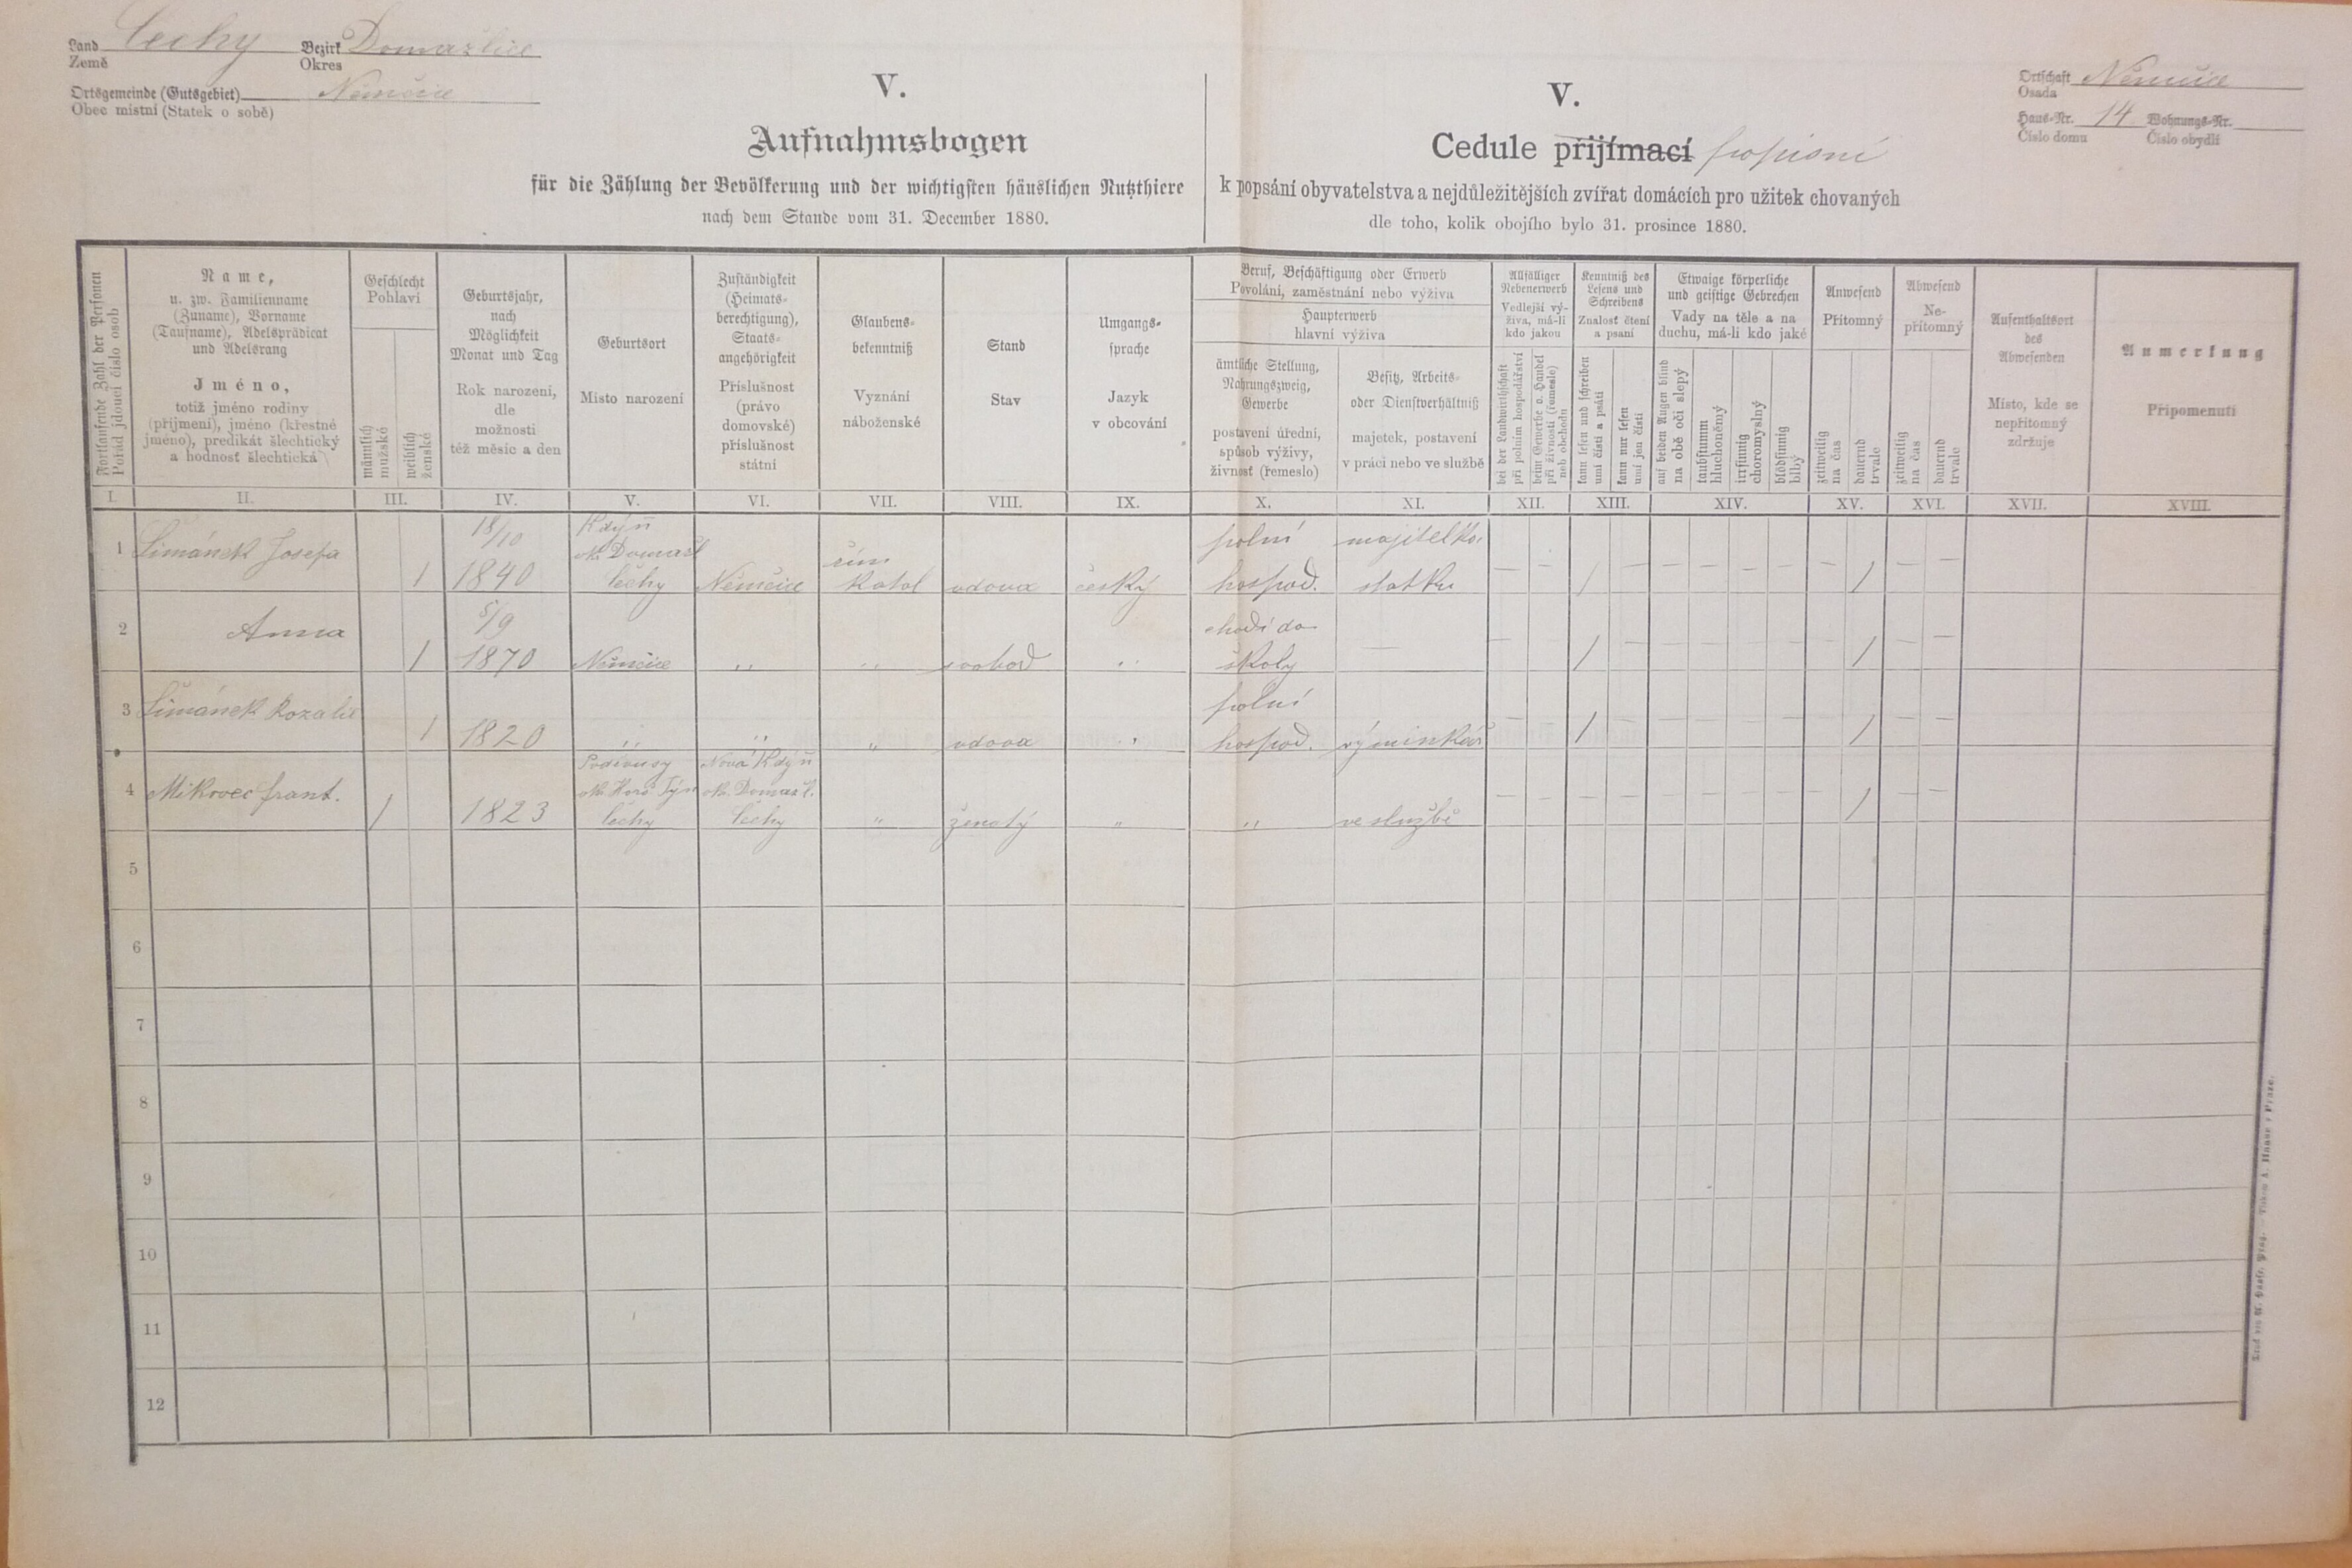 Land Čechy Bezirk Domažlice
Země Okres
Ortsgemeinde (Gutsgebiet) Němčice
Obec místní (Statek o sobě)
V.
Aufnahmsbogen
für die Zählung der Bevölkerung und der wichtigsten häuslichen Nutzthiere
nach dem Stande vom 31. December 1880.
V.
Cedule přijímací popisní
k popsání obyvatelstva a nejdůležitějších zvířat domácích pro užitek chovaných
dle toho, kolik obojího bylo 31. prosince 1880.
Ortschaft Němčice
Osada
Haus-Nr. 14 Wohnungs-Nr.
Číslo domu Číslo obydlí
Fortlaufende Zahl der Personen
Pořád jdoucí číslo osob
Name,
u. zw. Familienname
(Zuname), Vorname
(Taufname), Adelsprädicat
und Adelsrang
Jméno,
totiž jméno rodiny
(příjmení), jméno (křestné
jméno), predikát šlechtický
a hodnosť šlechtická
Geschlecht
Pohlaví
männlich
mužské
weiblich
ženské
Geburtsjahr,
nach
Möglichkeit
Monat und Tag
Rok narození,
dle
možnosti
též měsíc a den
Geburtsort
Místo narození
Zuständigkeit
(Heimats-
berechtigung),
Staats-
angehörigkeit
Příslušnost
(právo
domovské)
příslušnost
státní
Glaubens-
bekenntniß
Vyznání
náboženské
Stand
Stav
Umgangs-
sprache
Jazyk
v obcování
Beruf, Beschäftigung oder Erwerb
Povolání, zaměstnání nebo výživa
Haupterwerb
hlavní výživa
ämtliche Stellung,
Nahrungszweig,
Gewerbe
postavení úřední,
způsob výživy,
živnost (řemeslo)
Besitz, Arbeits-
oder Dienstverhältniß
majetek, postavení
v práci nebo ve službě
Allfälliger
Nebenerwerb
Vedlejší vý-
živa, má-li
kdo jakou
bei der Landwirthschaft
při polním hospodářství
beim Gewerbe o. Handel
při živnosti (řemesle)
neb obchodu
Kenntniß des
Lesens und
Schreibens
Znalost čtení
a psaní
kann lesen und schreiben
umí čísti a psáti
kann nur lesen
umí jen čísti
Etwaige körperliche
und geistige Gebrechen
Vady na těle a na
duchu, má-li kdo jaké
auf beiden Augen blind
na obě oči slepý
taubstumm
hluchoněmý
irrsinnig
choromyslný
blödsinnig
blbý
Anwesend
Přítomný
zeitweilig
na čas
dauernd
trvale
Abwesend
Ne-
přítomný
zeitweilig
na čas
dauernd
trvale
Aufenthaltsort
des
Abwesenden
Místo, kde se
nepřítomný
zdržuje
Anmerkung
Připomenutí
I. II. III. IV. V. VI. VII. VIII. IX. X. XI. XII. XIII. XIV. XV. XVI. XVII. XVIII.
18/10 Kdyň polní majitelka
1 Šimánek Josefa ok. Domažl řím
1 1840 Čechy Němčice katol vdova český hospod. statku — — / — — — — — — / — —
5/9 chodí do
2 Anna — — — — — — — — — — —
1 1870 Němčice " " svobod " školy / /
3 Šimánek Rozalie polní
1 1820 " " " vdova " hospod. výminkář — — / — — — — — — / — —
Nová Kdyň
4 Mikovec Frant. ok. Horš. Týn ok. Domažl.
1 1823 Čechy Čechy " ženatý " " ve službě — — — — — — — — — / — —
5
6
7
8
9
10
11
12